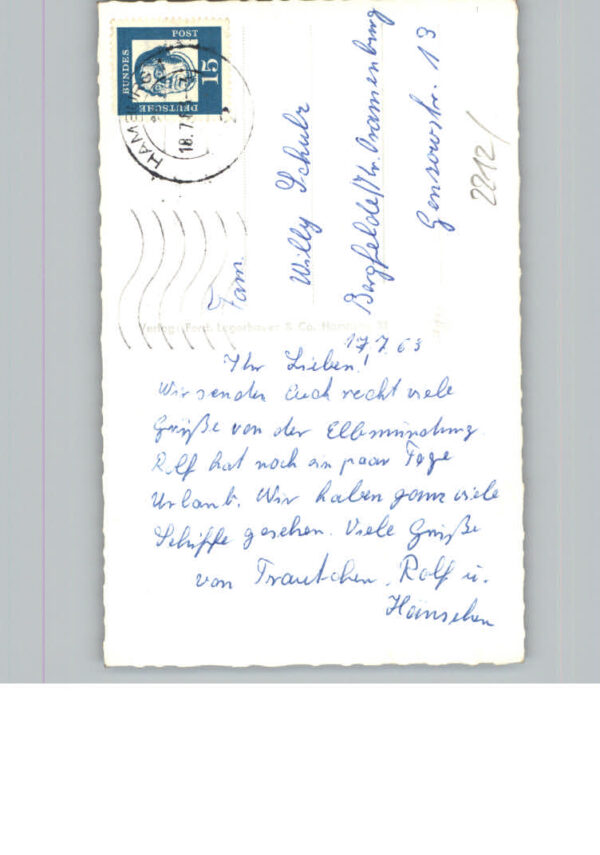 DEUTSCHE
BUNDES
POST
15
HAMBURG
18.7.6
2
Fam.
Willy Schulz
Bergfelde/Kr. Oranienburg
Gensowstr. 13
2212/
Verlag: Ferd. Lagerbauer & Co. Hamburg
17.7.63
Ihr Lieben!
Wir senden Euch recht viele
Grüße von der Elbmündung.
Rolf hat noch ein paar Tage
Urlaub. Wir haben ganz viele
Schiffe gesehen. Viele Grüße
von Trautchen, Rolf u.
Hänschen